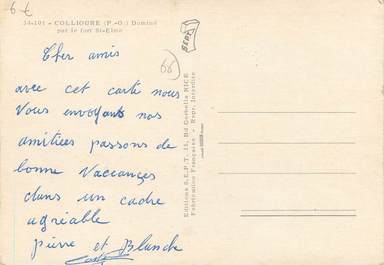 6 €
14-101 - COLLIOURE (P.-O.) Dominé
par le fort St-Elme
66
Cher amis
avec cet carte nous
Vous envoyant nos
amitiées passons de
bonne Vaccances
dans un cadre
agréable
pierre et Blanche
Editions S.E.P.T. 11, Bd Gorbella NICE
Fabrication Française - Repr. Interdite